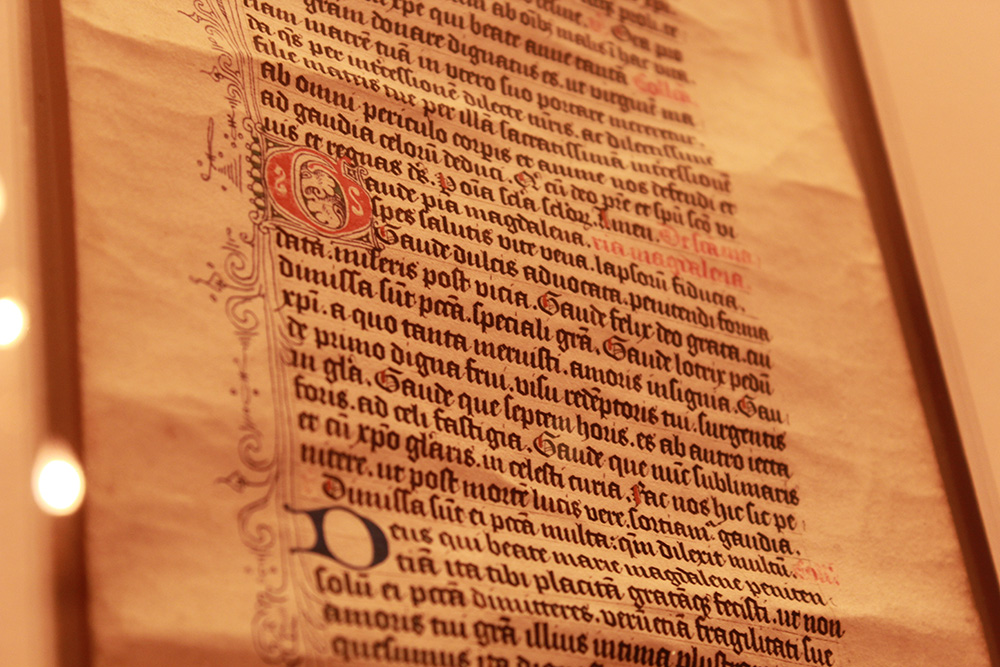 xpe qui beate anne tantā
gram donare dignatus es. ut virginē ma
riam matrē tuā in utero suo portare mereretur.
da q̄s per intercessionē dilecte mr̄is. ac dilectissime
filie matris tue per illā sacratissimā intercessionē
ab omni periculo corpis et anime nos defendi et
ad gaudia celorū deduci. Q cū deo pr̄e et spū scō vi
uis et regnas ds̄. P oīa scla sclōꝝ. Amen. Or sca ma
Gaude pia magdalena. ria magdalena.
spes salutis vite vena. lapsorū fiducia.
Gaude dulcis aduocata. penitendi forma
data. miseris post vicia. Gaude felix deo grata. cui
dimissa sūt pctā. speciali grā. Gaude lotrix pedū
xp̄i. a quo tanta meruisti. amoris insignia. Gau
de primo digna frui. visu redēptoris tui. surgentis
in glā. Gaude que septem horis. es ab antro iecta
foris. ad celi fastigia. Gaude que nūc sublimaris
et cū xp̄o glaris. in celesti curia. Fac nos hic sic pe
nitere. ut post mortē lucis vere. sortiam gaudia.
Dimissa sūt ei pctā multa: qm̄ dilexit multū.
Deus qui beate marie magdalene peniten
tiā ita tibi placitā gratāqꝫ fecisti. ut non
solū ei pctā dimitteres. verū etiā fragilitati sue
amoris tui grā illius intima
quesumus ita